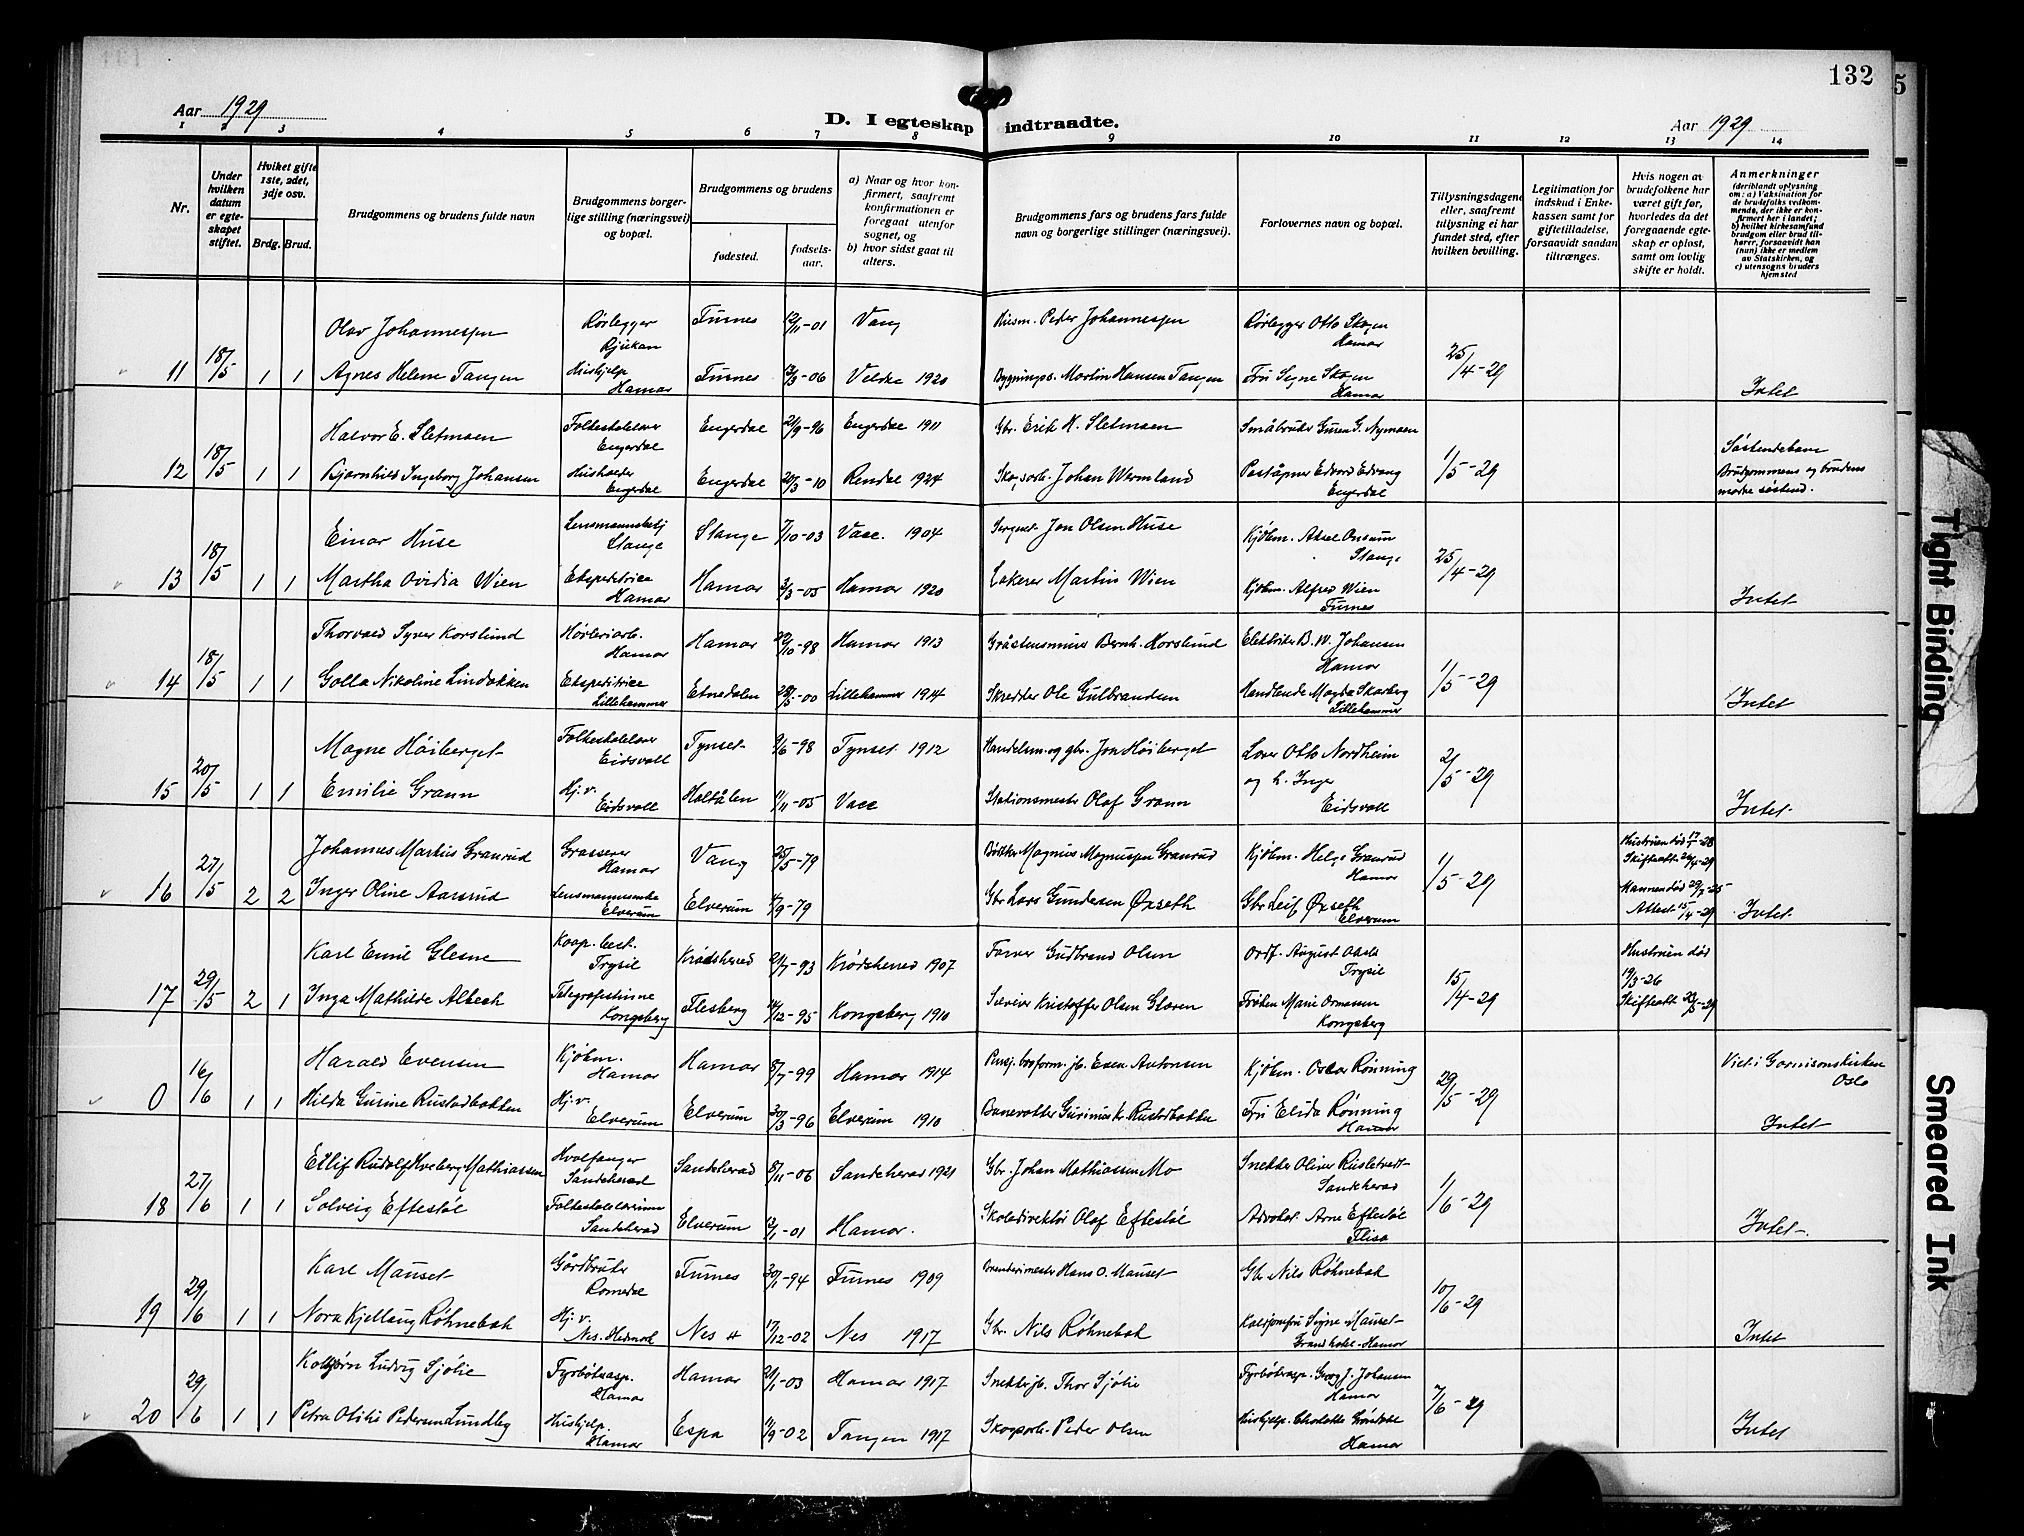 132
Aar 1929
D. I egteskap indtraadte.
Aar 1929
1 2 3 4 5 6 7 8 9 10 11 12 13 14
Nr.
Under hvilken datum er egteskapet stiftet.
Hviket gifte 1ste, 2det, 3dje osv.
Brdg. Brud.
Brudgommens og brudens fulde navn
Brudgommens borgerlige stilling (næringsvei) og bopæl.
Brudgommens og brudens
fødested.
fødselsaar.
a) Naar og hvor konfirmert, saafremt konfirmationen er foregaat utenfor sognet, og
b) hvor sidst gaat til alters.
Brudgommens fars og brudens fars fulde navn og borgerlige stillinger (næringsvei).
Forlovernes navn og bopæl.
Tillysningsdagene eller, saafremt tillysning ei har fundet sted, efter hvilken bevilling.
Legitimation for indskud i Enkekassen samt for giftetilladelse, forsaavidt saadan tiltrænges.
Hvis nogen av brudefolkene har været gift før, hvorledes da det foregaaende egteskap er opløst, samt om lovlig skifte er holdt.
Anmerkninger
(deriblandt oplysning om: a) Vaksination for de brudefolks vedkommende, der ikke er konfirmert her i landet; b) hvilket kirkesamfund brudgom eller brud tilhører, forsaavidt han (hun) ikke er medlem av Statskirken, og c) utensogns bruders hjemsted
Olav Johannessen Rørlegger Rjukan Furnes 12/11-01 Vang Husm. Peder Johannessen Rørlegger Otto Skogen Hamar
11 18/5 1 1 Agnes Helene Tangen Hushjelp Hamar Furnes 2/3-06 Veldre 1920 Bygningss. Martin Hansen Tangen Fru Signe Skogen Hamar 25/4-29 Intet
Halvor E. Sletmoen Folkeskolelærer Engerdal Engerdal 21/9-96 Engerdal 1911 Gbr. Erik H. Sletmoen Småbruker Guren G. Nymoen
12 18/5 1 1 Bjarnhild Ingeborg Johansen Husholder Engerdal Engerdal 20/3-10 Rendal 1924 Skogsarb. Johan Wermland Poståpner Edvard Edvang Engerdal 1/5-29 Søskendebarn Brudgommens og brudens mødre søskend.
Einar Huse Lensmannsbetj Stange Stange 7/10-03 Vall. 1904 Sergeant Jon Olsen Huse Kjøbm. Aksel Onsum Stange
13 18/5 1 1 Martha Ovidia Wien Ekspeditrice Hamar Hamar 3/3-05 Hamar 1920 Lakerer Martin Wien Kjøbm. Alfred Wien Furnes 25/4-29 Intet
Thorvald Syver Korslund Høvleriarb. Hamar Hamar 22/10-98 Hamar 1913 Gråstensmurer Bernh. Korslund Elektriker B. W. Johansen Hamar
14 18/5 1 1 Golla Nikoline Lindokken Ekspeditrice Lillehammer Etnedalen 28/5-00 Lillehammer 1914 Skredder Ole Gulbrandsen Handlende Magda Skarberg Lillehammer 1/5-29 Intet
Magne Høiberget Folkeskolelærer Eidsvoll Tynset 9/6-98 Tynset 1912 Handelsm. og gbr. Jon Høiberget Lærer Otto Nordheim
15 20/5 1 1 Emilie Graun Hj. v. Eidsvoll Holtålen 11/11-05 Vall Stationsmester Olaf Graun og h. Inger Eidsvoll 2/5-29 Intet
Johannes Markus Granrud Grosserer Hamar Vang 25/5-79 Bøkker Magnus Magnussen Granrud Kjøbm. Helge Granrud Hamar Hustruen død 17/1-28 Skifteatt 26/4-29
16 27/5 2 2 Inger Oline Aasrud Lensmannsenke Elverum Elverum 4/9-79 Gbr Lars Gundersen Øxseth Gbr Leif Øxseth Elverum 1/5-29 Mannen død 29/7-25 Attest 15/4-29 Intet
Karl Emil Glesne Koop. best. Trysil Krødsherad 21/7-93 Krødsherad 1907 Farver Gudbrand Olsen Ordf. August Trysil Hustruen død
17 29/5 2 1 Inga Mathilde Albech Telegrafistinne Kongsberg Flesberg 14/12-95 Kongsberg 1910 Kristoffer Olsen Frøken Marie Ormassen Kongsberg 15/4-29 19/3-26 Skifteatt 22/5-29
Harald Evensen Kjøbm. Hamar Hamar 8/7-99 Hamar 1914 Pensj. baneform. jb. Even Antonsen Kjøbm. Oskar Rønning Viet i Garnisonskirken Oslo
0 16/6 1 1 Hilda Gurine Rustadbakken Hj. v. Elverum Elverum 30/3-96 Elverum 1910 Banevokter Gurinius Kr. Rustadbakken Fru Elida Rønning Hamar 29/5-29 Intet
Eilif Rudolf Hveberg Mathiassen Hvalfanger Sandeherad Sandeherad 8/11-06 Sandeherad 1921 Gbr. Johan Mathiassen Mo Snekker Oliver Rusletvedt Sandeherad
18 27/6 1 1 Solveig Eftestøl Folkeskolelærerinne Sandeherad Elverum 2/1-01 Hamar. Skoledirektør Olaf Eftestøl Advokat. Arne Eftestøl Flisa 1/6-29 Intet
Karl Mauset Gårdbruker Romedal Furnes 30/1-94 Furnes 1909 Brenderimester Hans O. Mauset Gbr Nils Røhnebak
19 29/6 1 1 Nora Kjellaug Røhnebak Hj. v. Nes. Hedmark Nes H 17/12-02 Nes 1917 Gbr. Nils Røhnebak Signe Mauset Grand hotel - Hamar 10/6-29 Intet
Kolbjørn Ludvig Sjølie Fyrbøterasp. Hamar Hamar 21/1-03 Hamar 1917 Snekker jb. Thor Sjølie Fyrbøterasp. Georg J. Johansen Hamar
20 29/6 1 1 Petra Otilie Pedersen Lundby Hushjelp. Hamar Espa 11/9-02 Tangen 1917 Skogsarb. Peder Olsen Hushjelp. Charlotte Grøndal Hamar 7/6-29 Intet
5
Tight Binding
Smeared Ink